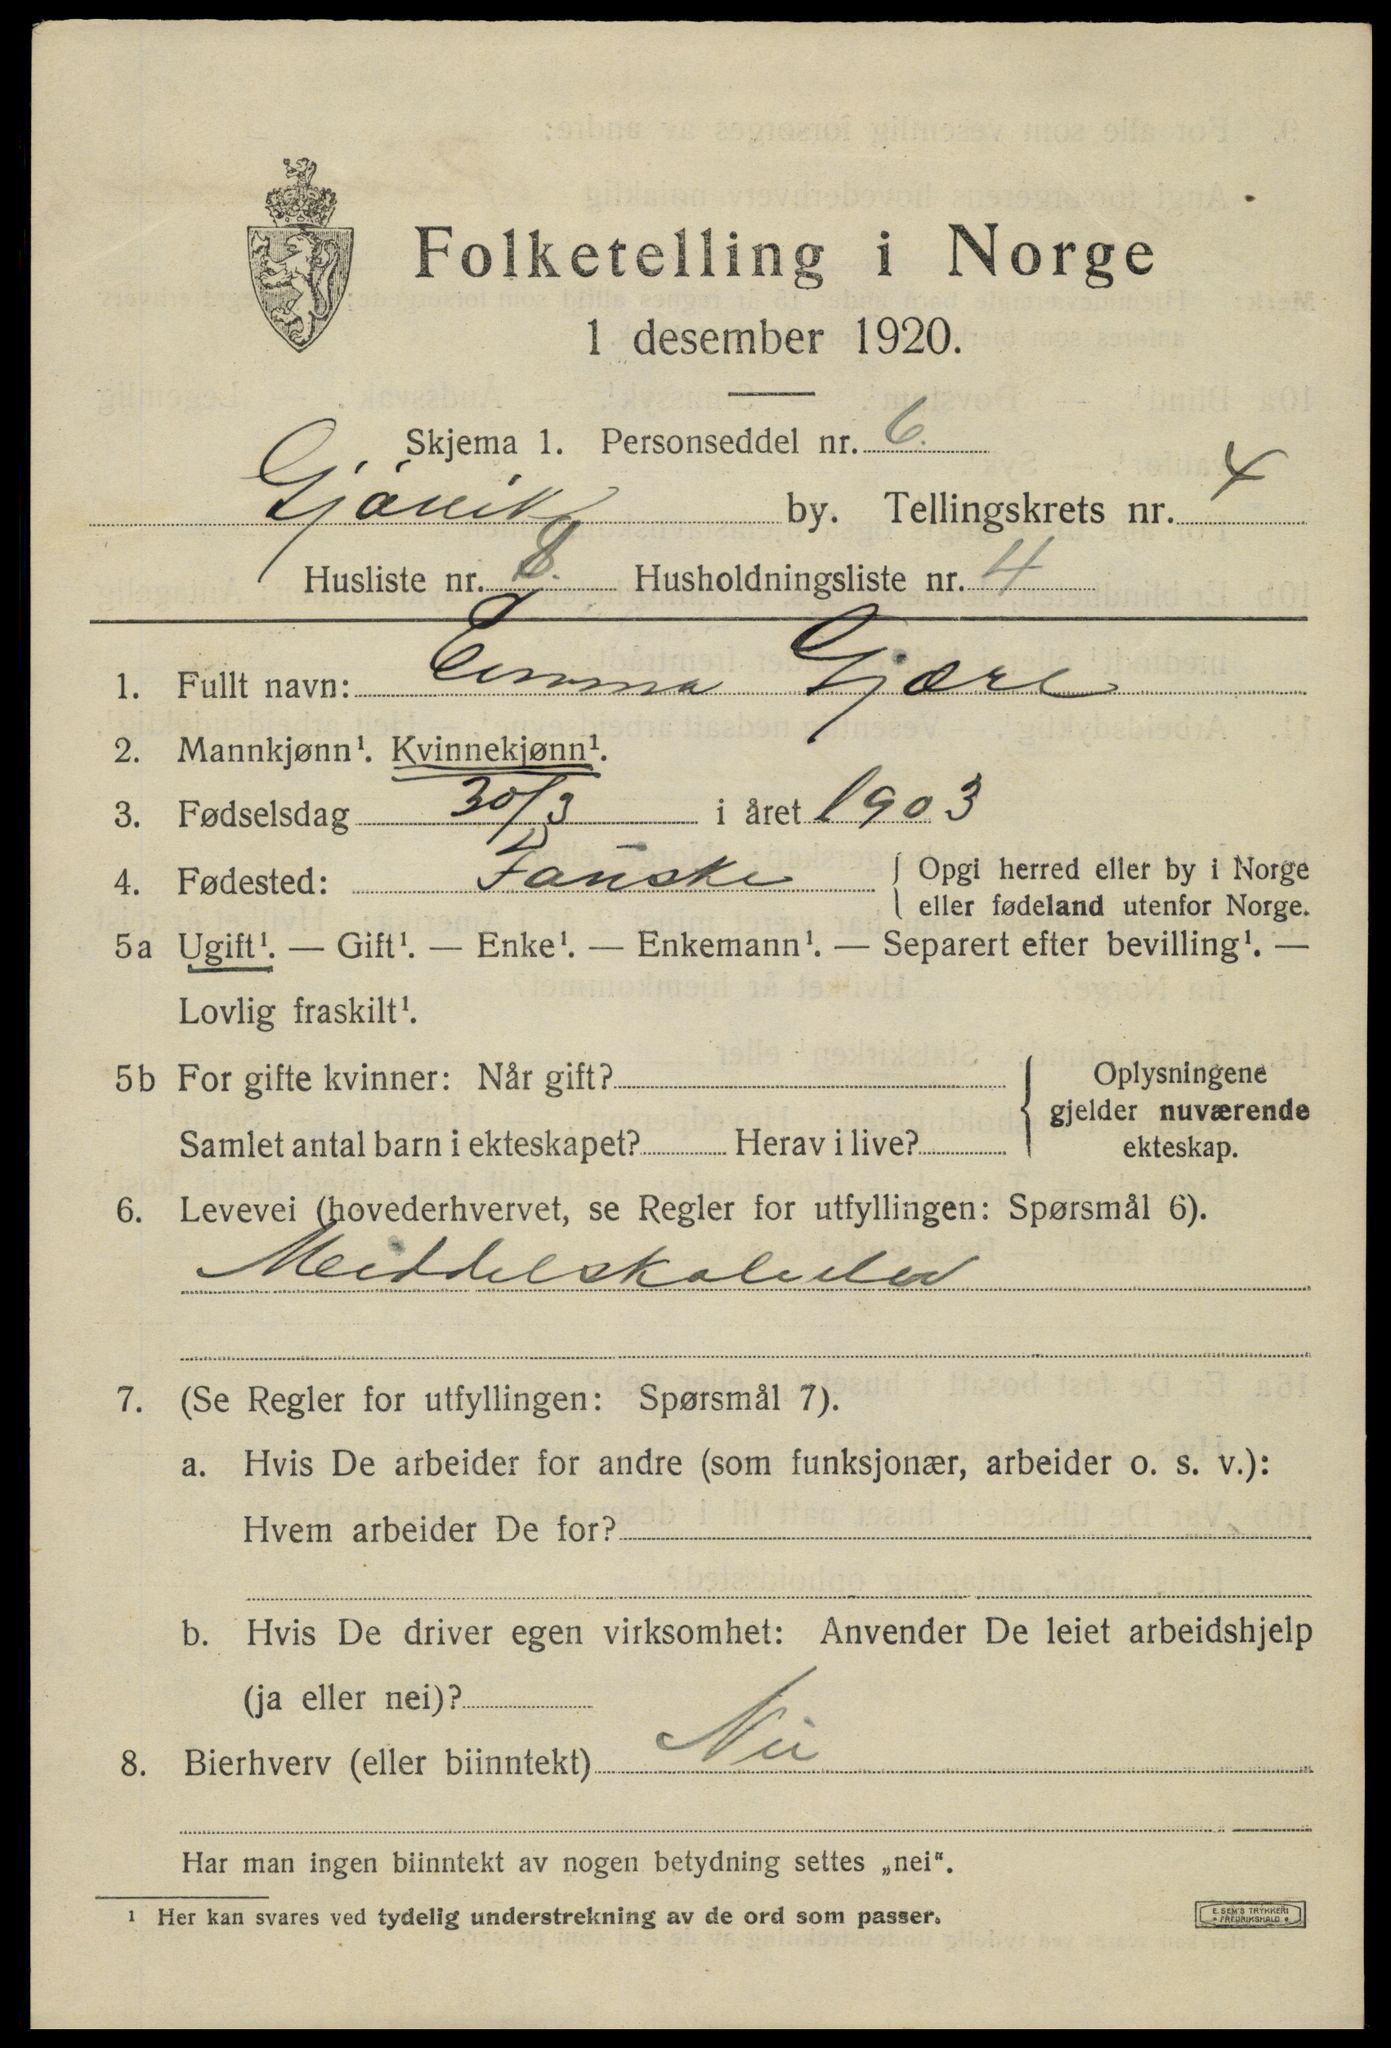 Folketelling i Norge
1 desember 1920.
Skjema 1. Personseddel nr. 6.
Gjövik by. Tellingskrets nr. 4
Husliste nr. 8. Husholdningsliste nr. 4
1. Fullt navn: Emma Gjære
2. Mannkjønn¹. Kvinnekjønn¹.
3. Fødselsdag 30/3 i året 1903
4. Fødested: Fauske { Opgi herred eller by i Norge
eller fødeland utenfor Norge.
5a Ugift¹. — Gift¹. — Enke¹. — Enkemann¹. — Separert efter bevilling¹. —
Lovlig fraskilt¹.
5b For gifte kvinner: Når gift? { Oplysningene
gjelder nuværende
Samlet antal barn i ekteskapet? Herav i live? ekteskap.
6. Levevei (hovederhvervet, se Regler for utfyllingen: Spørsmål 6).
Middelskoleelev
7. (Se Regler for utfyllingen: Spørsmål 7).
a. Hvis De arbeider for andre (som funksjonær, arbeider o. s. v.):
Hvem arbeider De for?
b. Hvis De driver egen virksomhet: Anvender De leiet arbeidshjelp
(ja eller nei)?
8. Bierhverv (eller biinntekt) Nei
Har man ingen biinntekt av nogen betydning settes „nei".
¹ Her kan svares ved tydelig understrekning av de ord som passer.
E. SEM'S TRYKKERI
• FREDRIKSHALD •